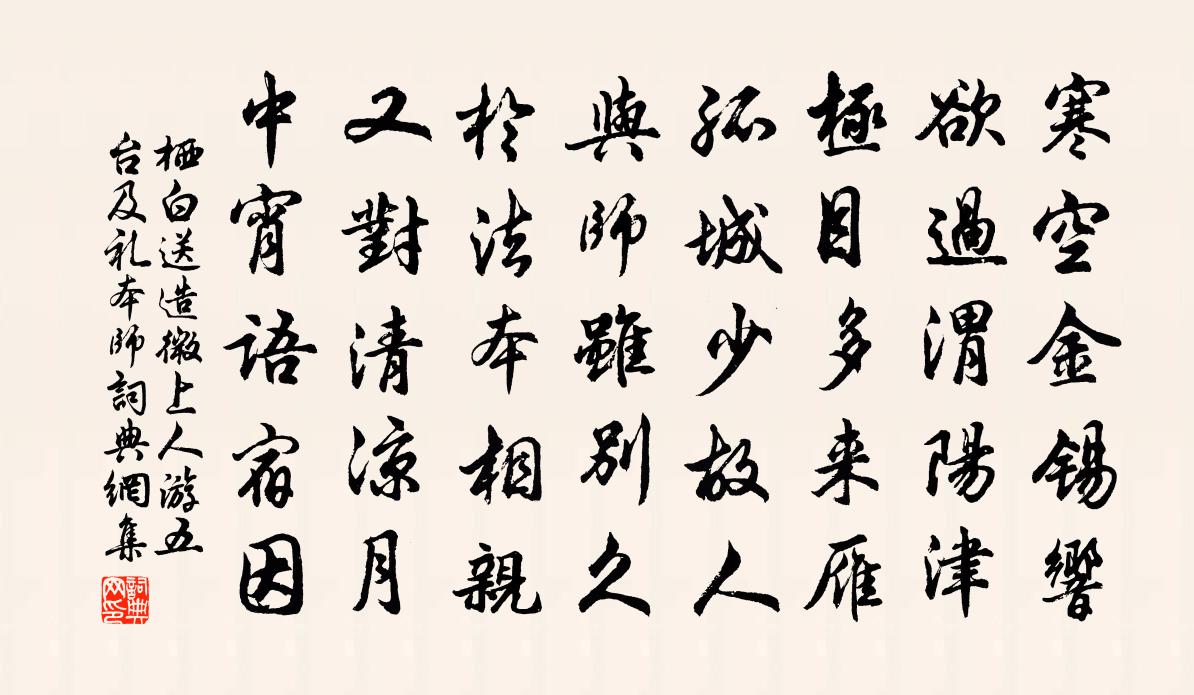 寒空金錫響
欲過渭陽津
極目多来雁
孤城少故人
與師雖別久
於法本相親
又對清涼月
中宵語宿因
栖白送造微上人游五
台及礼本師詞典網集
詞典
网印